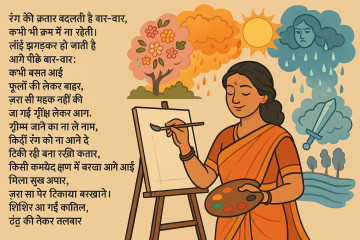 रंग की क़तार बदलती है बार-वार,
कभी भी क्रम में ना रहेती।
लॉई झगड़कर हो जाती है
आगे पीछे बार-वार:
कभी बसत आई
फूलों की लेकर बाहर,
ज़रा सी महक नहीं की
जा गई गृीष्म लेकर आग.
गृीम्म जाने का ना ले नाम,
किर्दी रंग को ना आने दे
टिकी रही बना रखी कतार,
किसी कमयेद्य क्षण में बरखा आगे आई
मिला सुख अपार,
ज़रा सा पेर टिंकाया बरखाने।
शिशिर आ गई कातिल,
ठंडु की नेकर तलबार